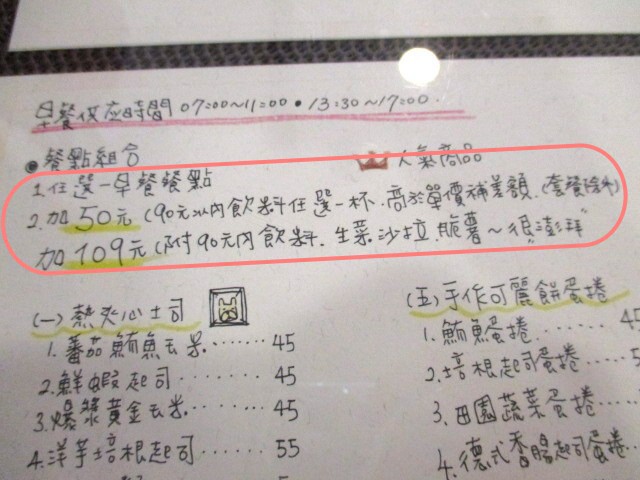 早餐供应時間 07:00~11:00 • 13:30~17:00.
●餐點組合
人氣商品
1.任選一早餐餐點
2.加50元(90元以内飲料任選一杯.高於單價補差額.(套餐除外)
加109元(附90元内飲料.生菜沙拉.脆薯~很"澎拜"
(一)熱夾心土司
1.蕃茄鮪魚玉米……45
2.鮮蝦起司……45
3.爆漿黃金玉米……45
4.洋芋培根起司……55
(五)手作可麗餅蛋捲
1.鮪魚蛋捲……45
2.培根起司蛋捲……
3.田園蔬菜蛋捲……
4.德式香腸起司蛋捲…